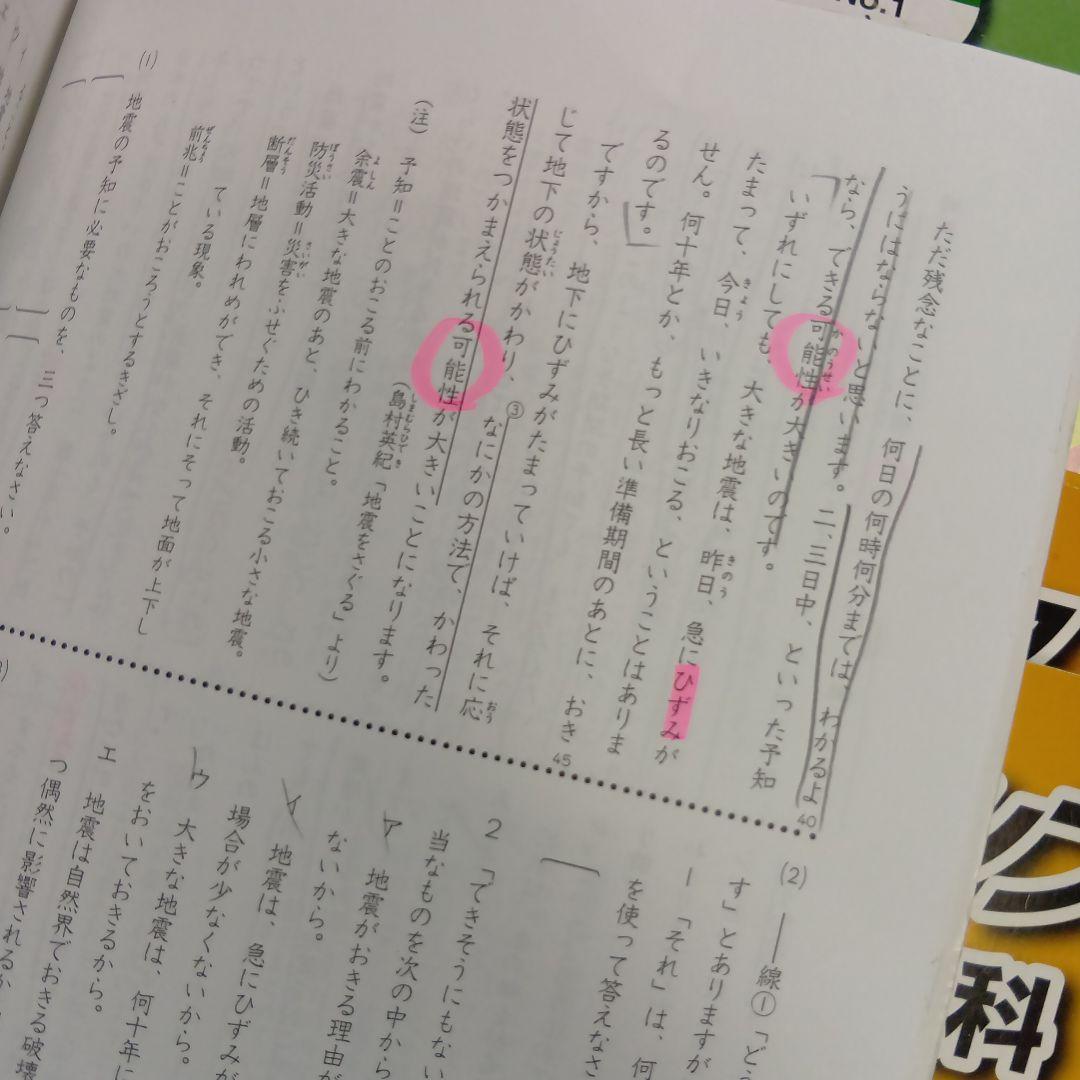 ただ残念なことに、何日の何時何分までは、わかるよ
うにはならないと思います。二、三日中、といった予知
なら、できる可能性が大きいのです。
いずれにしても、大きな地震は、昨日、急にひずみが
たまって、今日、いきなりおこる、ということはありま
せん。何十年とか、もっと長い準備期間のあとに、おき
るのです。
ですから、地下にひずみがたまっていけば、それに応
じて地下の状態がかわり、③なにかの方法で、かわった
状態をつかまえられる可能性が大きいことになります。
(島村英紀「地震をさぐる」より)
(注) 予知=ことのおこる前にわかること。
余震=大きな地震のあと、ひき続いておこる小さな地震。
防災活動=災害をふせぐための活動。
断層=地層にわれめができ、それにそって地面が上下し
ている現象。
前兆=ことがおころうとするきざし。
(1) 地震の予知に必要なものを、三つ答えなさい。
40
45
(2) ――線①「どう
す」とありますが
1 「それ」は、何
を使って答えなさ
2 「できそうにもない
当なものを次の中から
ア 地震がおきる理由が
ないから。
イ 地震は、急にひずみが
場合が少なくないから。
ウ 大きな地震は、何十年に
をおいておきるから。
エ 地震は自然界でおきる破壊
つ偶然に影響されるか
No.1
ク
科